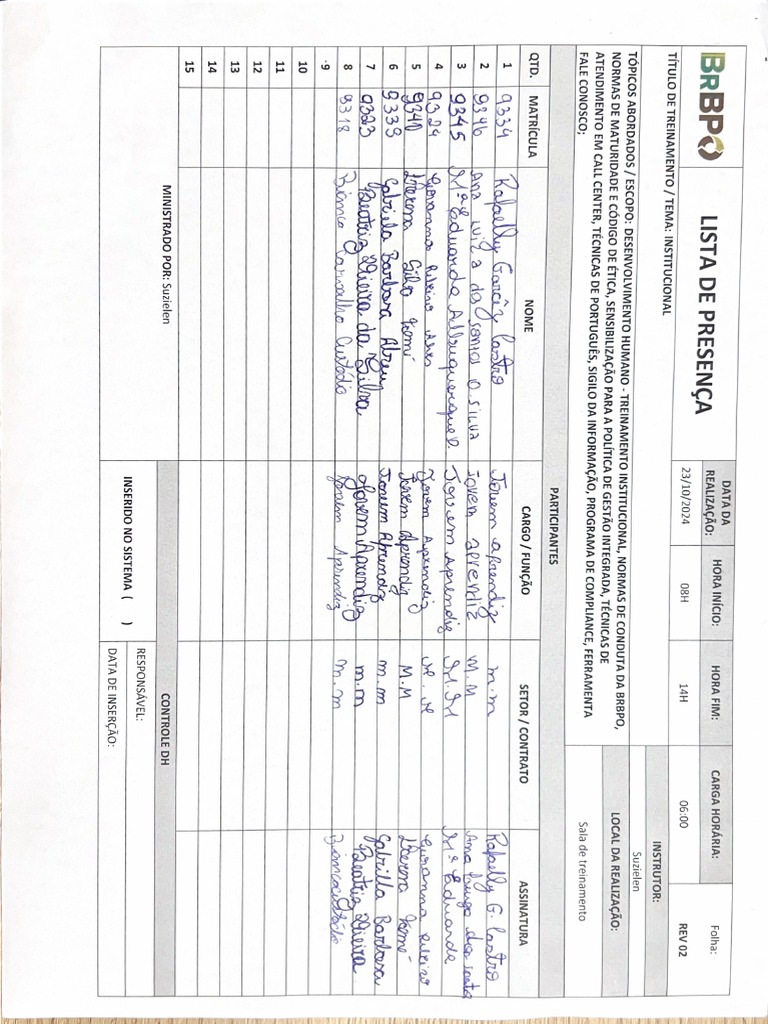 BRBPO
LISTA DE PRESENÇA
DATA DA REALIZAÇÃO: HORA INÍCIO: HORA FIM: CARGA HORÁRIA: Folha:
23/10/2024 08H 14H 06:00 REV 02
TÍTULO DE TREINAMENTO / TEMA: INSTITUCIONAL
INSTRUTOR:
Suzielen
TÓPICOS ABORDADOS / ESCOPO: DESENVOLVIMENTO HUMANO - TREINAMENTO INSTITUCIONAL, NORMAS DE CONDUTA DA BRBPO,
NORMAS DE MATURIDADE E CÓDIGO DE ÉTICA, SENSIBILIZAÇÃO PARA A POLÍTICA DE GESTÃO INTEGRADA, TÉCNICAS DE
ATENDIMENTO EM CALL CENTER, TÉCNICAS DE PORTUGUÊS, SIGILO DA INFORMAÇÃO, PROGRAMA DE COMPLIANCE, FERRAMENTA
FALE CONOSCO;
LOCAL DA REALIZAÇÃO:
Sala de treinamento
PARTICIPANTES
QTD. MATRÍCULA NOME CARGO / FUNÇÃO SETOR / CONTRATO ASSINATURA
1 9334 Rafaelly Garcêz Castro Jovem aprendiz m.m Rafaelly G. Castro
2 9346 Ana Luiza dos Santos O. Silva Jovem aprendiz M.M Ana Luiza dos Santos
3 9345 Mª Eduarda Albuquerque D. Jovem Aprendiz M.M Mª Eduarda
4 9324 Giovanna Ribeiro Alves Jovem Aprendiz Giovanna Ribeiro
5 9340 Silva Tomé Jovem Aprendiz M.M Tomé
6 9339 Gabriela Barbosa Abreu Jovem Aprendiz m.m Gabriella Barbosa
7 9323 Beatriz Vieira da Silva Jovem Aprendiz m.m Beatriz Vieira
8 9318 Bianca Carvalho Custódio Jovem Aprendiz m.m Bianca Custódio
9
10
11
12
13
14
15
MINISTRADO POR: Suzielen
CONTROLE DH
INSERIDO NO SISTEMA ( )
RESPONSÁVEL:
DATA DE INSERÇÃO: